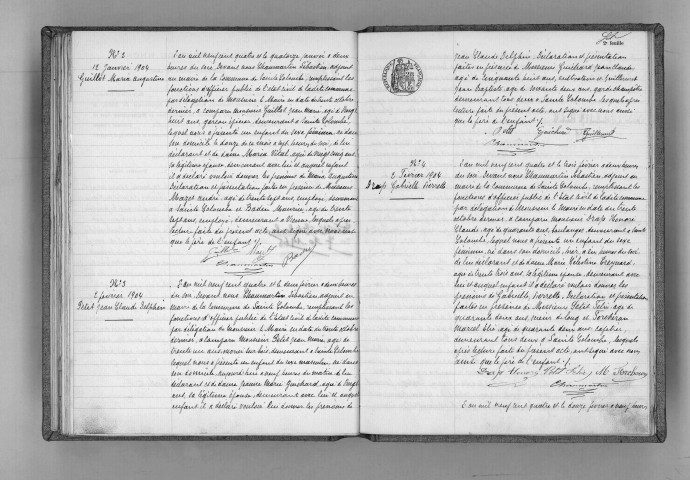 N° 2
12 Janvier 1904
Guillot Maria Augustine
L'an mil neuf cent quatre et le quatorze janvier à deux
heures du soir Devant nous Chaumartin Sébastien adjoint
au maire de la Commune de Sainte Colombe, remplissant les
fonctions d'officier public de l'état civil de ladite commune
par délégation de Monsieur le Maire en date du trente octobre
dernier, a comparu Monsieur Guillot Jean Marie, agé de vingt
huit ans, garçon épicier, demeurant à Sainte Colombe,
lequel nous a présenté un enfant du sexe féminin né dans
son domicile le douze de ce mois à sept heures du soir, de lui
déclarant et de dame Maria Vital agée de vingt cinq ans,
sa légitime épouse, demeurant avec lui et auquel enfant
il a déclaré vouloir donner les prénoms de Maria Augustine
Déclaration et présentation faites en présence de Messieurs
Mozet André agé de trente sept ans, employé, demeurant
à Sainte Colombe et Badin Maurice, agé de trente
sept ans, employé, demeurant à Vienne, lesquels après
lecture faite du présent acte, ont signé avec nous ainsi
que le père de l'enfant ./.
Guillot
Chaumartin
N° 3
2 février 1904
Petit Jean Claude Delphin
L'an mil neuf cent quatre et le deux février à deux heures
du soir Devant nous Chaumartin Sébastien adjoint au
maire de la Commune de Sainte Colombe, remplissant les
fonctions d'officier public de l'état civil de ladite commune
par délégation de Monsieur le Maire en date du trente octobre
dernier, a comparu Monsieur Petit Jean Marie, agé de
trente un ans, demeurant à Sainte Colombe
lequel nous a présenté un enfant du sexe masculin, né dans
son domicile aujourd'hui à neuf heures du matin de lui
déclarant et de dame Jeanne Marie Guichard, agée de vingt
ans, sa légitime épouse, demeurant avec lui et auquel
enfant il a déclaré vouloir lui donner les prénoms de
2e feuille
Jean Claude Delphin. Déclaration et présentation
faites en présence de Messieurs Guichard Jean Claude
agé de cinquante huit ans, et Guillermet
Jean Baptiste, agé de soixante deux ans, garde champêtre
demeurant tous deux à Sainte Colombe lesquels après
lecture faite du présent acte ont signé avec nous
que le père de l'enfant ./.
Petit Guichard Guillermet
Chaumartin
N° 4
2 Février 1904
Drap Gabrielle Pierrette
L'an mil neuf cent quatre et le trois février à deux heures
du soir Devant nous Chaumartin Sébastien adjoint au
maire de la Commune de Sainte Colombe, remplissant les
fonctions d'officier public de l'état civil de ladite commune
par délégation de Monsieur le Maire en date du trente
octobre dernier a comparu Monsieur Drap Honoré
Claude, agé de quarante ans, boulanger, demeurant à Sainte
Colombe, lequel nous a présenté un enfant du sexe
féminin né dans son domicile, hier, à une heure du soir
de lui déclarant et de dame Marie Célestine Greynard,
agée de trente trois ans, sa légitime épouse, demeurant avec
lui et auquel enfant il a déclaré vouloir donner les
prénoms de Gabrielle, Pierrette, Déclaration et présentation
faites en présence de Messieurs Petit Félix agé de
quarante deux ans et
Marcel agé de quarante deux ans
demeurant tous deux à Sainte Colombe, lesquels
après lecture faite du présent acte, ont signé avec nous
ainsi que le père de l'enfant ./.
Drap Honoré Petit Félix
Chaumartin
L'an mil neuf cent quatre et le douze février à neuf heures